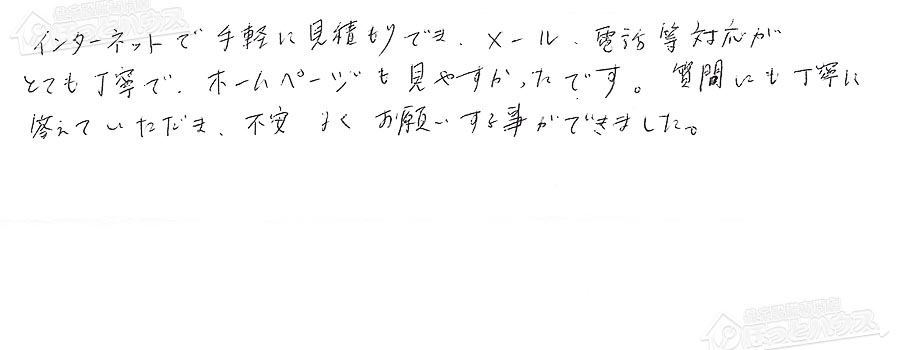 インターネットで手軽に見積もりでき、メール、電話等対応が
とても丁寧で、ホームページも見やすかったです。質問にも丁寧に
答えていただき、不安なくお願いする事ができました。
ほっとハウス
ほっとハウス